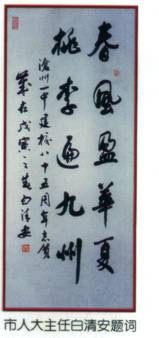 春風盈華夏
桃李遍九州
滄州一中建校八十五周年志賀
歲在戊寅之
市人大主任白清安题词